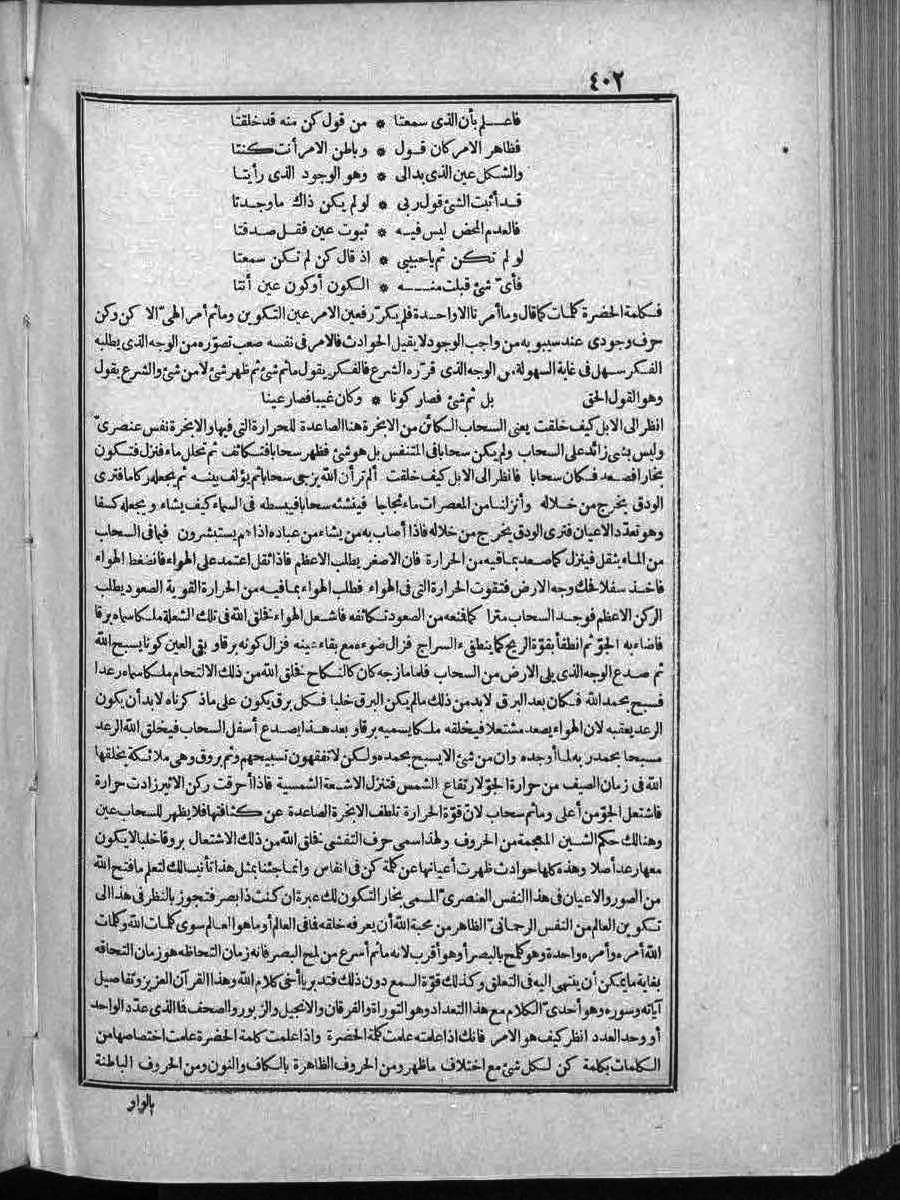 ٤٠٢
فاعلم بأن الذى سمعتا * من قول كن منه قد خلقتا
فظاهر الامر كان قول * وباطن الامر أنت كنتا
والشكل عين الذى بدالى * وهو الوجود الذى رأيتا
قد أثبت الشئ قول ربى * لو لم يكن ذاك ما وجدتا
فالعدم المحض ليس فيه * ثبوت عين فقل صدقتا
لو لم تكن ثم ياحبيبى * اذ قال كن لم تكن سمعتا
فأى شئ قبلت منه * الكون أو كون عين أنتا
فكلمة الحضرة كلمات كما قال وما أمرنا الا واحدة فلم يكرر فعين الامر عين التكوين وما ثم أمر الهى الا كن وكن
حرف وجودى عند سيبويه من واجب الوجود لا يقبل الحوادث فالامر فى نفسه صعب تصوره من الوجه الذى يطلبه
الفكر سهل فى غاية السهولة من الوجه الذى قرره الشرع فالفكر يقول ما ثم شئ ثم ظهر شئ لا من شئ والشرع يقول
وهو القول الحق بل ثم شئ فصار كونا * وكان غيبا فصار عينا
انظر الى الابل كيف خلقت يعنى السحاب الكائن من الابخرة هنا الصاعدة للحرارة التى فيها والابخرة نفس عنصرى
وليس بشئ زائد على السحاب ولم يكن سحابا فى المتنفس بل هو شئ فظهر سحابا فتكاثف ثم تحلل ماء فنزل فتكون
بخارا فصعد فكان سحابا فانظر الى الابل كيف خلقت ألم تر أن الله يزجى سحابا ثم يؤلف بينه ثم يجعله ركاما فترى
الودق يخرج من خلاله وأنزلنا من المعصرات ماء ثجاجا فينشئه سحابا فيبسطه فى السماء كيف يشاء ويجعله كسفا
وهو تعدد الاعيان فترى الودق يخرج من خلاله فاذا أصاب به من يشاء من عباده اذا هم يستبشرون فيما فى السحاب
من الماء يثقل فينزل كما صعد بما فيه من الحرارة فان الاصغر يطلب الاعظم فاذا ثقل اعتمد على الهواء فانضغط الهواء
فاخذ سفلا فحك وجه الارض فتقوت الحرارة التى فى الهواء فطلب الهواء بما فيه من الحرارة القوية الصعود يطلب
الركن الاعظم فوجد السحاب متراكما فمنعه من الصعود تكاثفه فاشعل الهواء فخلق الله فى تلك الشعلة ملكا سماه برقا
فاضاء به الجو ثم انطفأ بقوة الريح كما ينطفئ السراج فزال ضوءه مع بقاء عينه فزال كونه برقا وبقى العين كونا يسبح الله
ثم صدع الوجه الذى يلى الارض من السحاب فلما مازجه كان كالنكاح فخلق الله من ذلك الالتحام ملكا سماه رعدا
فسبح بحمد الله فكان بعد البرق لابد من ذلك ما لم يكن البرق خلبا فكل برق يكون على ما ذكرناه لابد أن يكون
الرعد يعقبه لان الهواء يصعد مشتعلا فيخلقه ملكا يسميه برقا وبعد هذا يصدع أسفل السحاب فيخلق الله الرعد
مسبحا بحمد ربه لما أوجده وان من شئ الا يسبح بحمده ولكن لا تفقهون تسبيحهم وثم بروق وهى ملائكة يخلقها
الله فى زمان الصيف من حرارة الجو لارتفاع الشمس فتنزل الاشعة الشمسية فاذا أحرقت ركن الاثير زادت حرارة
فاشتعل الجو من أعلى وما ثم سحاب لان قوة الحرارة تلطف الابخرة الصاعدة عن كثافتها فلا يظهر للسحاب عين
وهنالك حكم الشين المعجمة من الحروف ولهذا سمى حرف التفشى فخلق الله من ذلك الاشتعال بروقا خلبا لا يكون
معها رعد أصلا وهذه كلها حوادث ظهرت أعيانها عن كلمة كن فى انفاس وانما جئنا بمثل هذا تأنيسا لك لتعلم ما فتح الله
من الصور والاعيان فى هذا النفس العنصرى المسمى بخارا لتكون لك عبرة ان كنت ذا بصر فتجوز بالنظر فى هذا الى
تكوين العالم من النفس الرحمانى الظاهر من محبة الله أن يعرفه خلقه فما فى العالم أو ما هو العالم سوى كلمات الله وكلمات
الله أمره وأمره واحدة وهو كلمح بالبصر أو هو أقرب لانه ما ثم أسرع من لمح البصر فانه زمان التحاظه هو زمان التحاقه
بغاية ما يمكن أن ينتهى اليه فى التعلق وكذلك قوة السمع دون ذلك فتدبر يا أخى كلام الله وهذا القرآن العزيز وتفاصيل
آياته وسوره وهو أحدى الكلام مع هذا التعداد وهو التوراة والفرقان والانجيل والزبور والصحف فما الذى عدد الواحد
أو وحد العدد انظر كيف هو الامر فانك اذا علمته علمت كلمة الحضرة واذا علمت كلمة الحضرة علمت اختصاصها من
الكلمات بكلمة كن لكل شئ مع اختلاف ما ظهر ومن الحروف الظاهرة بالكاف والنون ومن الحروف الباطنة
بالواو